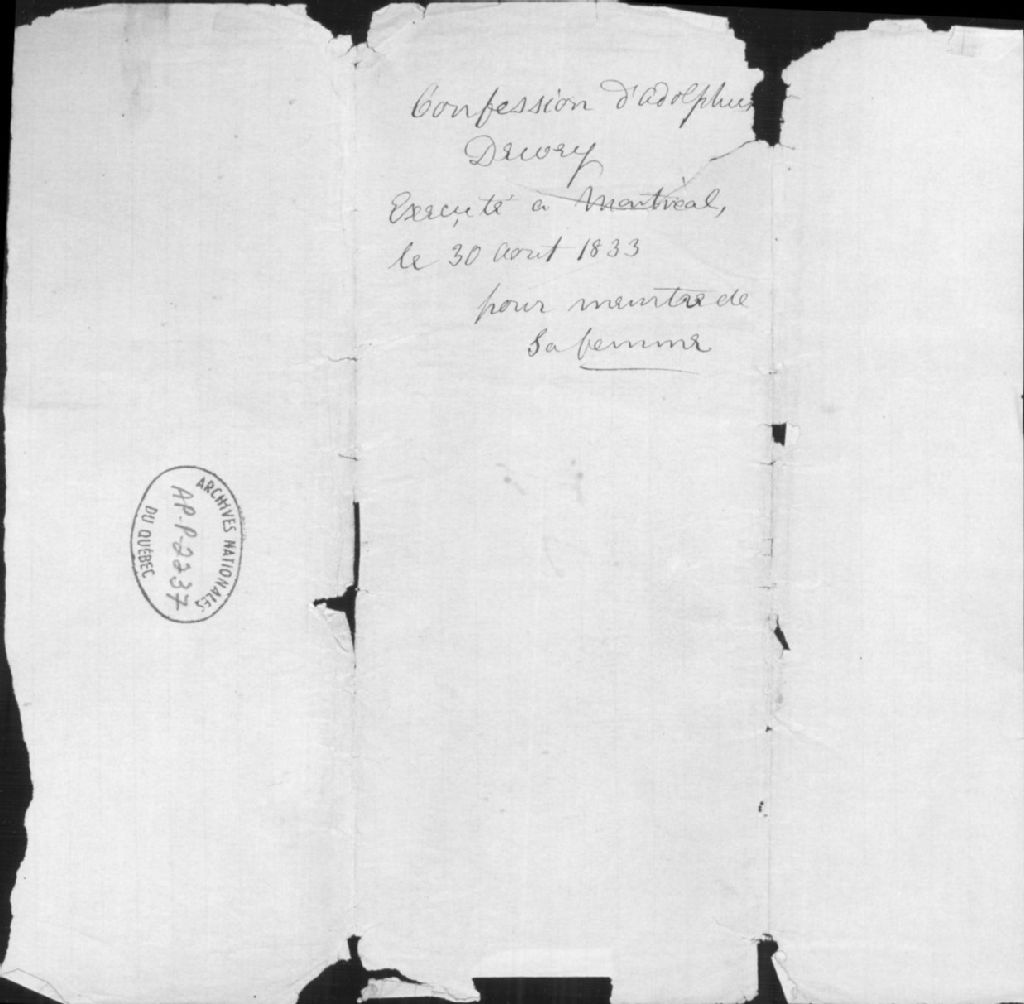 Confession d'adolphus
Dewey
Executé a Montreal,
le 30 aout 1833
pour meurtre de
Sa femme
ARCHIVES NATIONALES
AP-P-2237
DU QUÉBEC